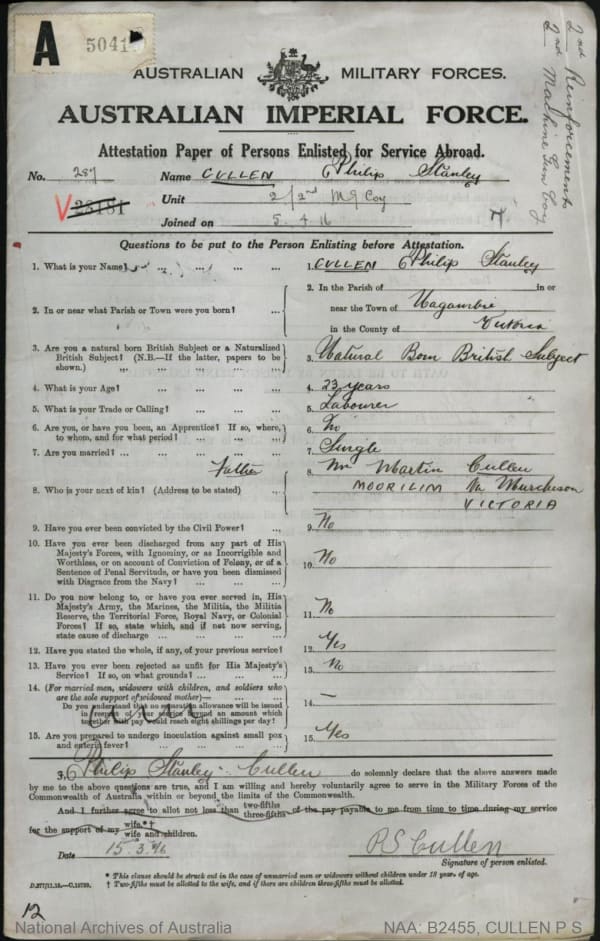 A
5041
2nd Reinforcements
2nd Machine Gun Coy
AUSTRALIAN MILITARY FORCES.
AUSTRALIAN IMPERIAL FORCE.
Attestation Paper of Persons Enlisted for Service Abroad.
No. 287 Name CULLEN Philip Stanley
V 28181 Unit 2/2nd M G Coy
Joined on 5.4.16
Questions to be put to the Person Enlisting before Attestation.
1. What is your Name? ... ... ... 1. CULLEN Philip Stanley
2. In or near what Parish or Town were you born? ... 2. In the Parish of in or
near the Town of Nagambie
in the County of Victoria
3. Are you a natural born British Subject or a Naturalized
British Subject? (N.B.—If the latter, papers to be
shown.) 3. Natural Born British Subject
4. What is your Age? ... ... ... 4. 23 years
5. What is your Trade or Calling? ... ... ... 5. Labourer
6. Are you, or have you been, an Apprentice? If so, where,
to whom, and for what period? ... ... ... 6. No
7. Are you married? ... ... ... 7. Single
8. Who is your next of kin? (Address to be stated) ... Father 8. Mr Martin Cullen
MOORILIM Nr Murchison
VICTORIA
9. Have you ever been convicted by the Civil Power? ... 9. No
10. Have you ever been discharged from any part of His
Majesty's Forces, with Ignominy, or as Incorrigible and
Worthless, or on account of Conviction of Felony, or of a
Sentence of Penal Servitude, or have you been dismissed
with Disgrace from the Navy? ... ... 10. No
11. Do you now belong to, or have you ever served in, His
Majesty's Army, the Marines, the Militia, the Militia
Reserve, the Territorial Force, Royal Navy, or Colonial
Forces? If so, state which, and if not now serving,
state cause of discharge ... ... ... 11. No
12. Have you stated the whole, if any, of your previous service? 12. Yes
13. Have you ever been rejected as unfit for His Majesty's
Service? If so, on what grounds? ... ... 13. No
14. (For married men, widowers with children, and soldiers who
are the sole support of widowed mother)—
Do you understand that no separation allowance will be issued
in respect of your service beyond an amount which
together with pay would reach eight shillings per day? 14. —
15. Are you prepared to undergo inoculation against small pox
and enteric fever? ... ... ... 15. Yes
I, Philip Stanley Cullen do solemnly declare that the above answers made
by me to the above questions are true, and I am willing and hereby voluntarily agree to serve in the Military Forces of the
Commonwealth of Australia within or beyond the limits of the Commonwealth.
And I further agree to allot not less than two-fifths three-fifths of the pay payable to me from time to time during my service
for the support of my wife.*† wife and children.
Date 15.3.16 P S Cullen
Signature of person enlisted.
* This clause should be struck out in the case of unmarried men or widowers without children under 18 years of age.
† Two-fifths must be allotted to the wife, and if there are children three-fifths must be allotted.
12
National Archives of Australia NAA: B2455, CULLEN P S